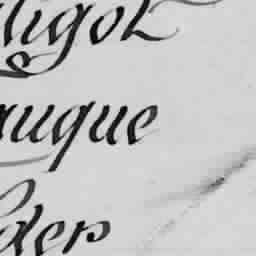 ligol
auque
ders